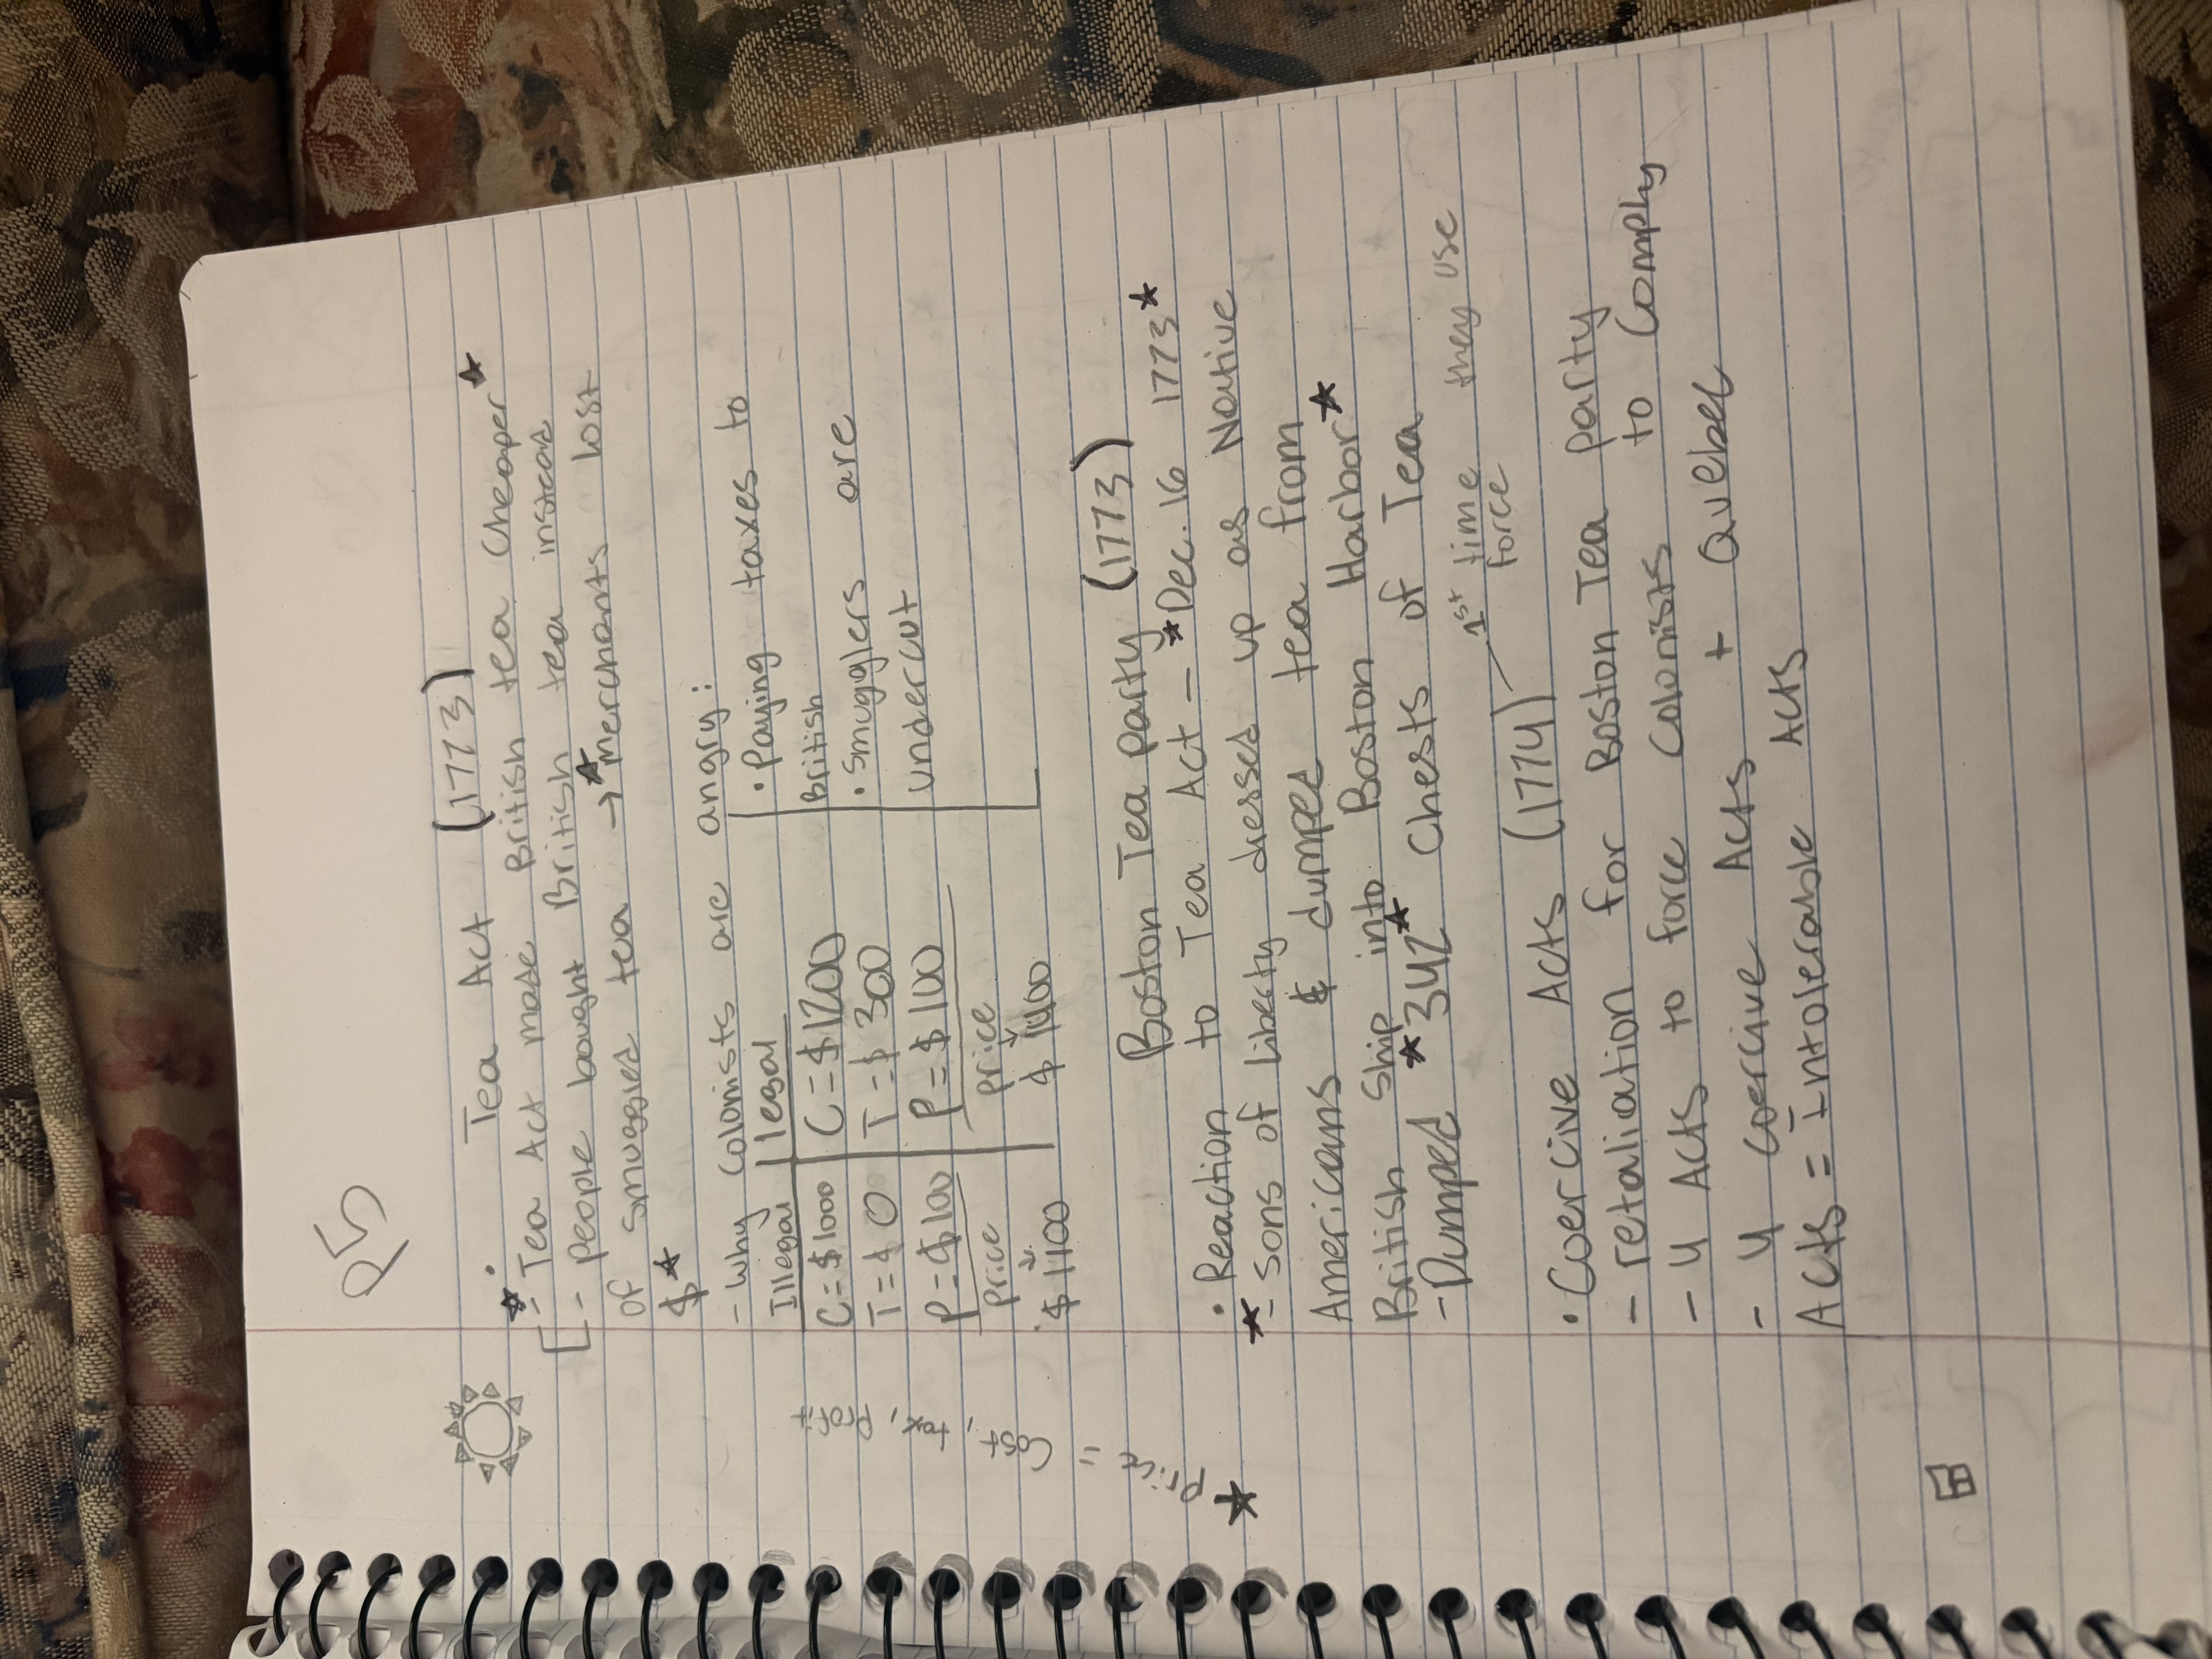 25
• Tea Act (1773)
- Tea Act made British tea cheaper
- People bought British tea instead
of smuggled tea → merchants lost
$
- Why Colonists are angry:
Illegal | legal
• Paying taxes to
C = $1000 | C = $1200
British
T = $ 0 | T = $ 300
• Smugglers are
P = $100 | P = $100
undercut
Price | Price
$1100 | $1400
Price = Cost, tax, Profit
Boston Tea party (1773)
• Reaction to Tea Act - Dec. 16 1773
- Sons of liberty dressed up as Native
Americans & dumped tea from
British Ship into Boston Harbor
- Dumped 342 Chests of Tea
1st time they use
force
• Coercive Acts (1774)
- retaliation for Boston Tea party
- 4 Acts to force Colonists to Comply
- 4 coercive Acts + Quebec
Acts = Intolerable Acts